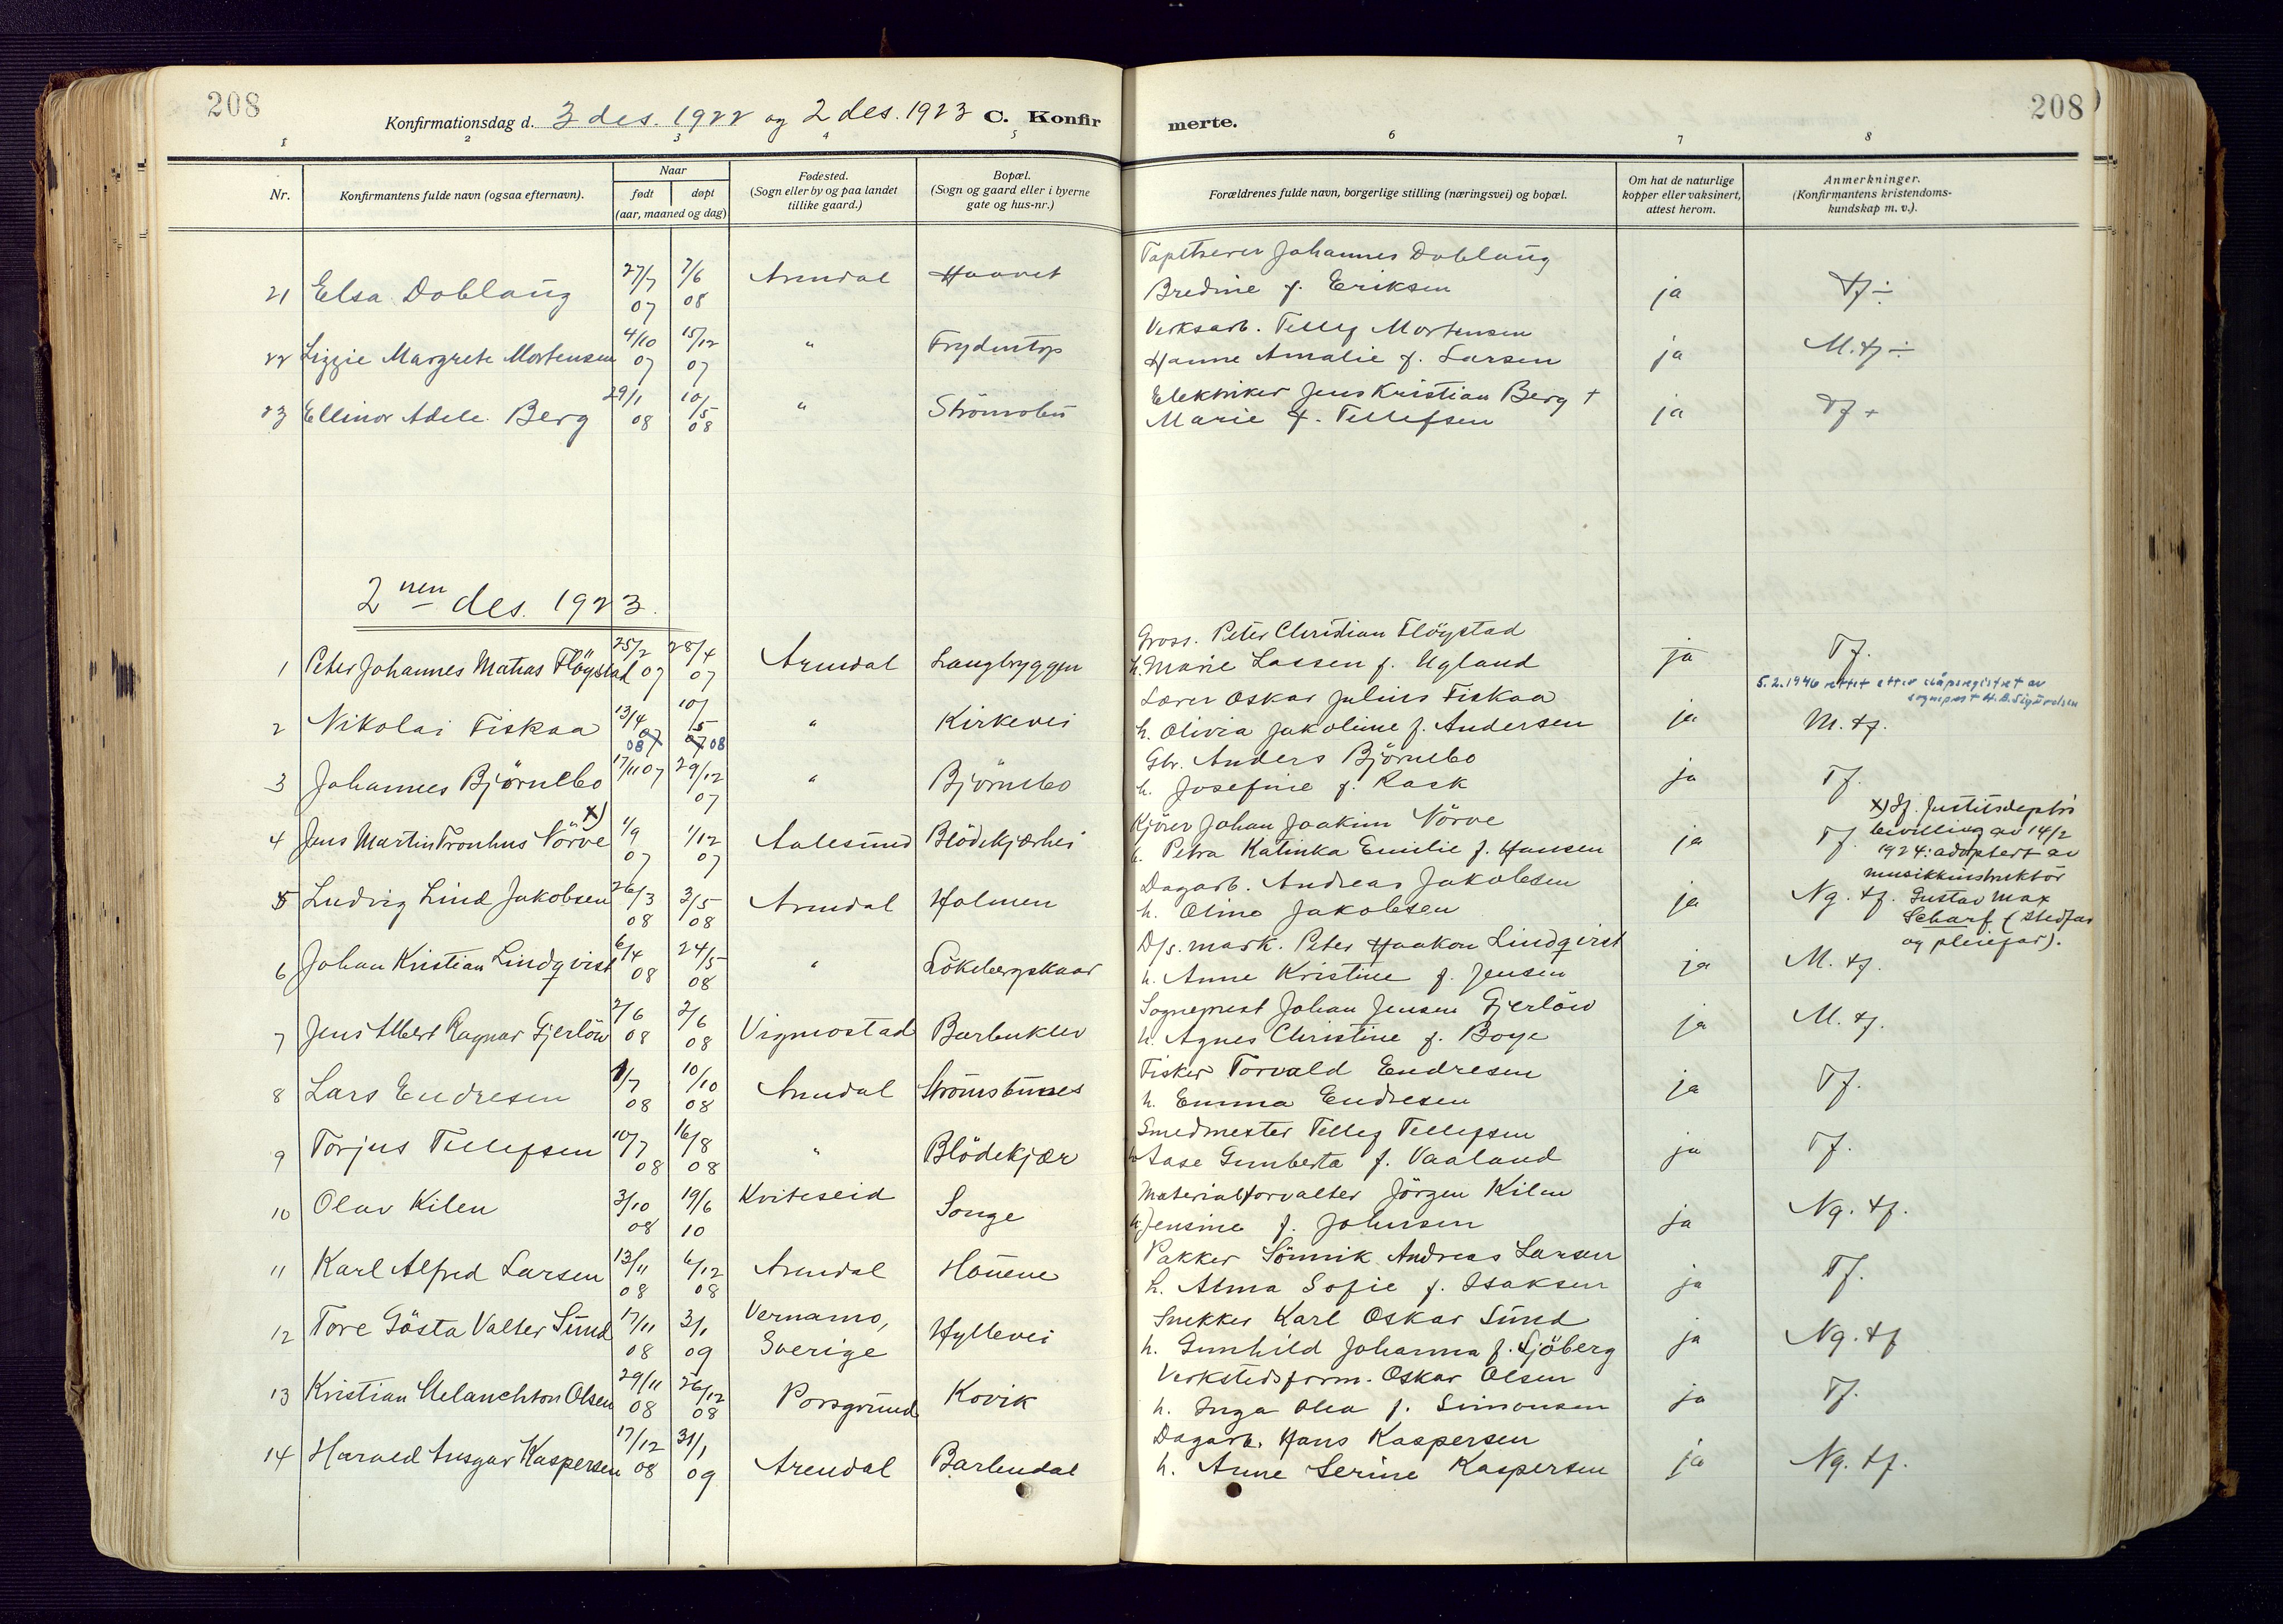 208
208
Konfirmationsdag d. 3 des. 1922 og 2 des. 1923 C. Konfir merte.
1 2 3 4 5 6 7 8
Nr. Konfirmantens fulde navn (ogsaa efternavn). Naar født døpt (aar, maaned og dag) Fødested. (Sogn eller by og paa landet tillike gaard.) Bopæl. (Sogn og gaard eller i byerne gate og hus-nr.) Forældrenes fulde navn, borgerlige stilling (næringsvei) og bopæl. Om hat de naturlige kopper eller vaksinert, attest herom. Anmerkninger. (Konfirmantens kristendoms- kundskap m. v.).
Johannes Doblaug
21 Elsa Doblaug 27/7 07 7/6 08 Arendal Haavet Bredine f. Eriksen ja Tf ÷
Verksarb. Tellef Mortensen
22 Lizzie Margrete Mortensen 4/10 07 15/12 07 " Frydentop Hanne Amalie f. Larsen ja M. tf ÷
Elektriker Jens Kristian Berg +
23 Ellinor Adele Berg 29/1 08 10/5 08 " Strømsbu Marie f. Tellefsen ja Tf +
2nen des. 1923.
Gross. Peter Christian Fløystad
1 Peter Johannes Matias Fløystad 25/2 07 28/4 07 Arendal Langbryggen h. Marie Lassen f. Ugland ja Tf.
5.2.1946 rettet etter dåpsregistret av
sogneprest
Lærer Oskar Julius Fiskaa
2 Nikolai Fiskaa 13/4 07 08 10/5 07 08 " Kirkevei h. Olivia Jakoline f. Andersen ja M. tf.
Gbr. Anders Bjørnebo
3 Johannes Bjørnebo 17/11 07 29/12 07 " Bjørnebo h. Josefine f. Rask ja Tf.
Kjører Johan Joakim Nörve
4 Jens Martin Tronhus Nörve x) 1/9 07 1/12 07 Aalesund Blödekjærhei h. Petra Katinka Emilie f. Hansen ja Tf.
x) If. Justitsdepts
bevilling av 14/2
1924: adoptert av
musikkinstruktør
Gustav Max
Scharf (stedfar
og pleiefar).
Dagarb. Andreas Jakobsen
5 Ludvig Lind Jakobsen 26/3 08 3/5 08 Arendal Holmen h. Oline Jakobsen ja Ng. tf.
D/s. mask. Peter Haakon Lindqvist
6 Johan Kristian Lindqvist 6/4 08 24/5 08 " Lökebergskaar h. Anne Kristine f. Jensen ja M. tf.
Sogneprest Johan Jensen Gjerlöw
7 Jens Albert Ragnar Gjerlöw 2/6 08 2/6 08 Vigmostad Barbuklev h. Agnes Christine f. Boye ja M. tf.
Fisker Torvald Endresen
8 Lars Endresen 1/7 08 10/10 08 Arendal Strömsbunes h. Emma Endresen ja Tf.
Smedmester Tellef Tellefsen
9 Torjus Tellefsen 10/7 08 16/8 08 " Blödekjær h. Aase Gunberta f. Vaaland ja Tf.
Materialforvalter Jörgen Kilen
10 Olav Kilen 3/10 08 19/6 10 Kviteseid Songe h. Jensine f. Johnsen ja Ng. tf.
Pakker Sönnik Andreas Larsen
11 Karl Alfred Larsen 13/11 08 6/12 08 Arendal Houene h. Alma Sofie f. Isaksen ja Tf.
Snekker Karl Oskar Sund
12 Tore Gösta Valter Sund 17/11 08 3/1 09 Vernamo, Sverige Hyllevei h. Gunhild Johanna f. Sjöberg ja Ng. tf
Verkstedsform. Oskar Olsen
13 Kristian Melanchton Olsen 29/11 08 26/12 08 Porsgrund Kovik h. Inga Olea f. Simonsen ja Tf.
Dagarb. Hans Kaspersen
14 Harald Ansgar Kaspersen 17/12 08 31/1 09 Arendal Barbudal h. Anne Serine Kaspersen ja Ng. tf.